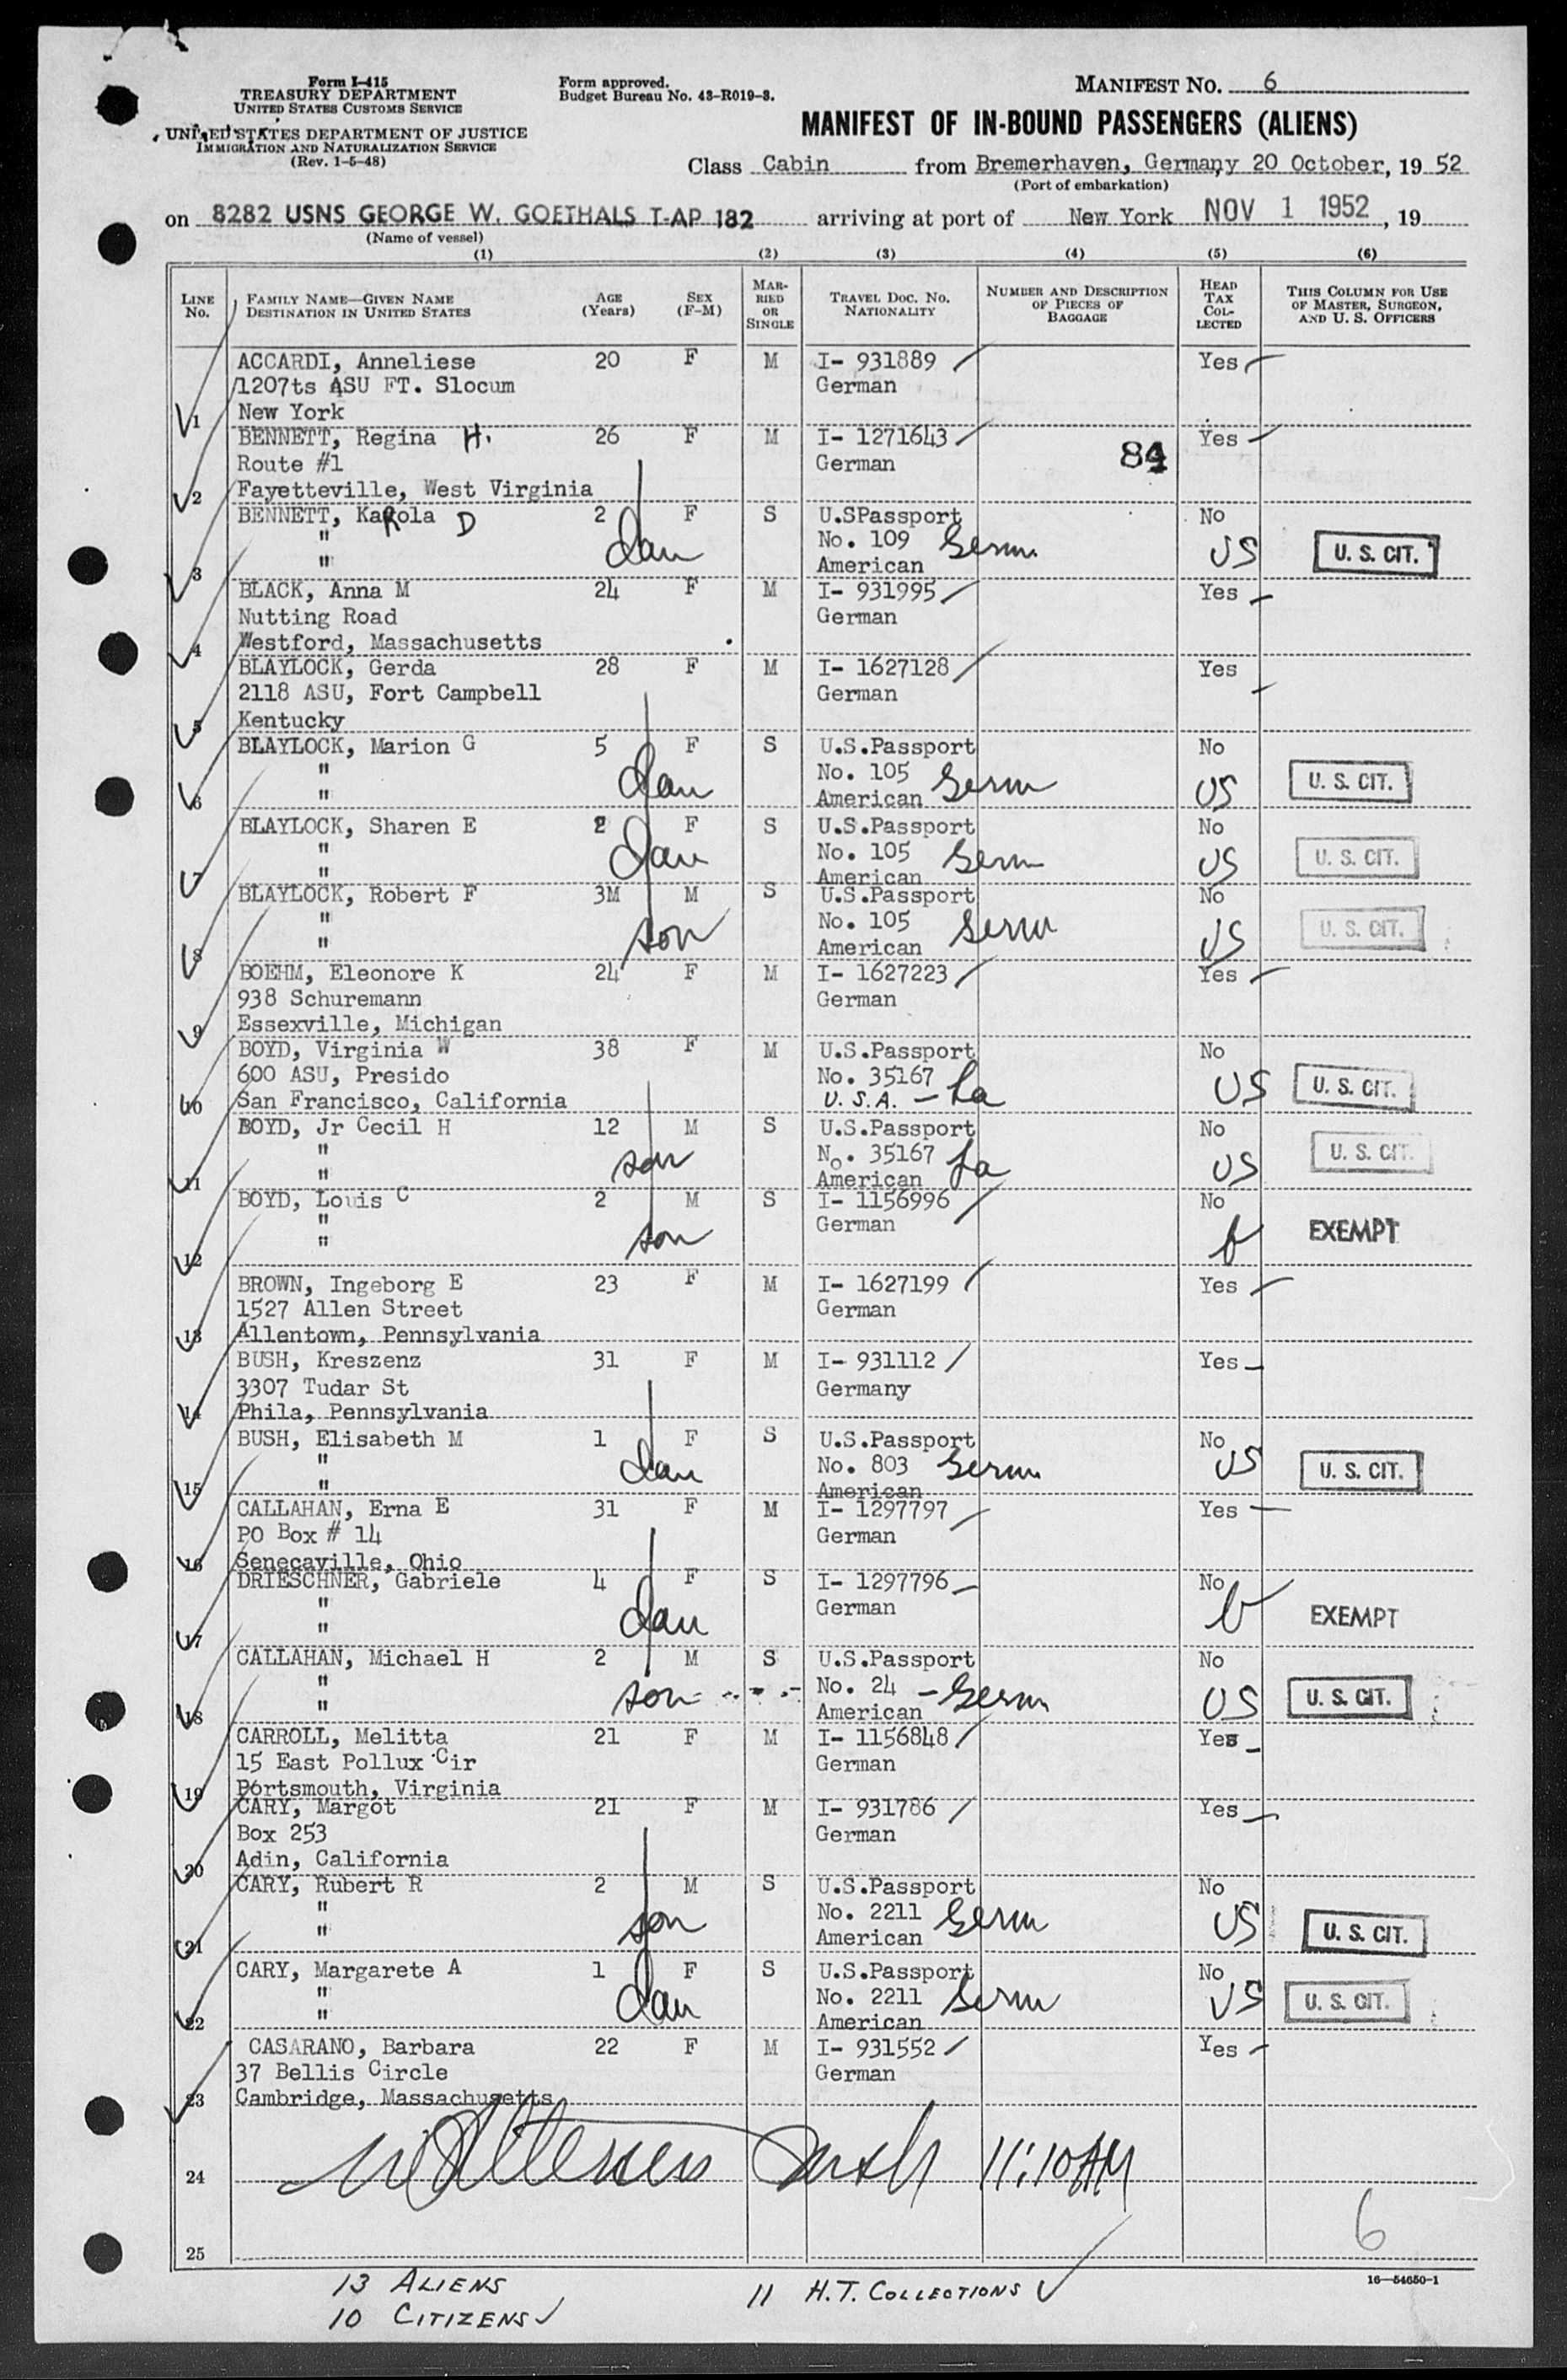 Form I-415
TREASURY DEPARTMENT
UNITED STATES CUSTOMS SERVICE
UNITED STATES DEPARTMENT OF JUSTICE
IMMIGRATION AND NATURALIZATION SERVICE
(Rev. 1-5-48)
Form approved.
Budget Bureau No. 43-R019-3.
MANIFEST NO. 6
MANIFEST OF IN-BOUND PASSENGERS (ALIENS)
Class Cabin from Bremerhaven, Germany 20 October, 19 52
(Port of embarkation)
on 8282 USNS GEORGE W. GOETHALS T-AP 182 arriving at port of New York NOV 1 1952, 19
(Name of vessel)
(1) (2) (3) (4) (5) (6)
LINE No. FAMILY NAME—GIVEN NAME DESTINATION IN UNITED STATES AGE (Years) SEX (F-M) MARRIED OR SINGLE TRAVEL DOC. NO. NATIONALITY NUMBER AND DESCRIPTION OF PIECES OF BAGGAGE HEAD TAX COLLECTED THIS COLUMN FOR USE OF MASTER, SURGEON, AND U. S. OFFICERS
ACCARDI, Anneliese 20 F M I- 931889 Yes
1207ts ASU FT. Slocum German
1 New York
BENNETT, Regina H. 26 F M I- 1271643 Yes
Route #1 German 84
2 Fayetteville, West Virginia
BENNETT, Karola D 2 F S U.SPassport No
" dau No. 109 Germ US U. S. CIT.
3 " American
BLACK, Anna M 24 F M I- 931995 Yes
Nutting Road German
4 Westford, Massachusetts
BLAYLOCK, Gerda 28 F M I- 1627128 Yes
2118 ASU, Fort Campbell German
5 Kentucky
BLAYLOCK, Marion G 5 F S U.S.Passport No
" dau No. 105 Germ US U. S. CIT.
6 " American
BLAYLOCK, Sharen E 2 F S U.S.Passport No
" dau No. 105 Germ US U. S. CIT.
7 " American
BLAYLOCK, Robert F 3M M S U.S.Passport No
" son No. 105 Germ US U. S. CIT.
8 " American
BOEHM, Eleonore K 24 F M I- 1627223 Yes
938 Schuremann German
9 Essexville, Michigan
BOYD, Virginia W 38 F M U.S.Passport No
600 ASU, Presido No. 35167 US U. S. CIT.
10 San Francisco, California U.S.A. - La
BOYD, Jr Cecil H 12 M S U.S.Passport No
" son No. 35167 La US U. S. CIT.
11 " American
BOYD, Louis C 2 M S I- 1156996 No
" son German EXEMPT
12 "
BROWN, Ingeborg E 23 F M I- 1627199 Yes
1527 Allen Street German
13 Allentown, Pennsylvania
BUSH, Kreszenz 31 F M I- 931112 Yes
3307 Tudar St Germany
14 Phila, Pennsylvania
BUSH, Elisabeth M 1 F S U.S.Passport No
" dau No. 803 Germ US U. S. CIT.
15 " American
CALLAHAN, Erna E 31 F M I- 1297797 Yes
PO Box # 14 German
16 Senecaville, Ohio
DRIESCHNER, Gabriele 4 F S I- 1297796 No
" dau German EXEMPT
17 "
CALLAHAN, Michael H 2 M S U.S.Passport No
" son No. 24 - Germ US U. S. CIT.
18 " American
CARROLL, Melitta 21 F M I- 1156848 Yes
15 East Pollux Cir German
19 Portsmouth, Virginia
CARY, Margot 21 F M I- 931786 Yes
Box 253 German
20 Adin, California
CARY, Rubert R 2 M S U.S.Passport No
" son No. 2211 Germ US U. S. CIT.
21 " American
CARY, Margarete A 1 F S U.S.Passport No
" dau No. 2211 Germ US U. S. CIT.
22 " American
CASARANO, Barbara 22 F M I- 931552 Yes
37 Bellis Circle German
23 Cambridge, Massachusetts
24 11:10 AM
6
25
13 ALIENS 11 H.T. COLLECTIONS
10 CITIZENS
16—54650-1